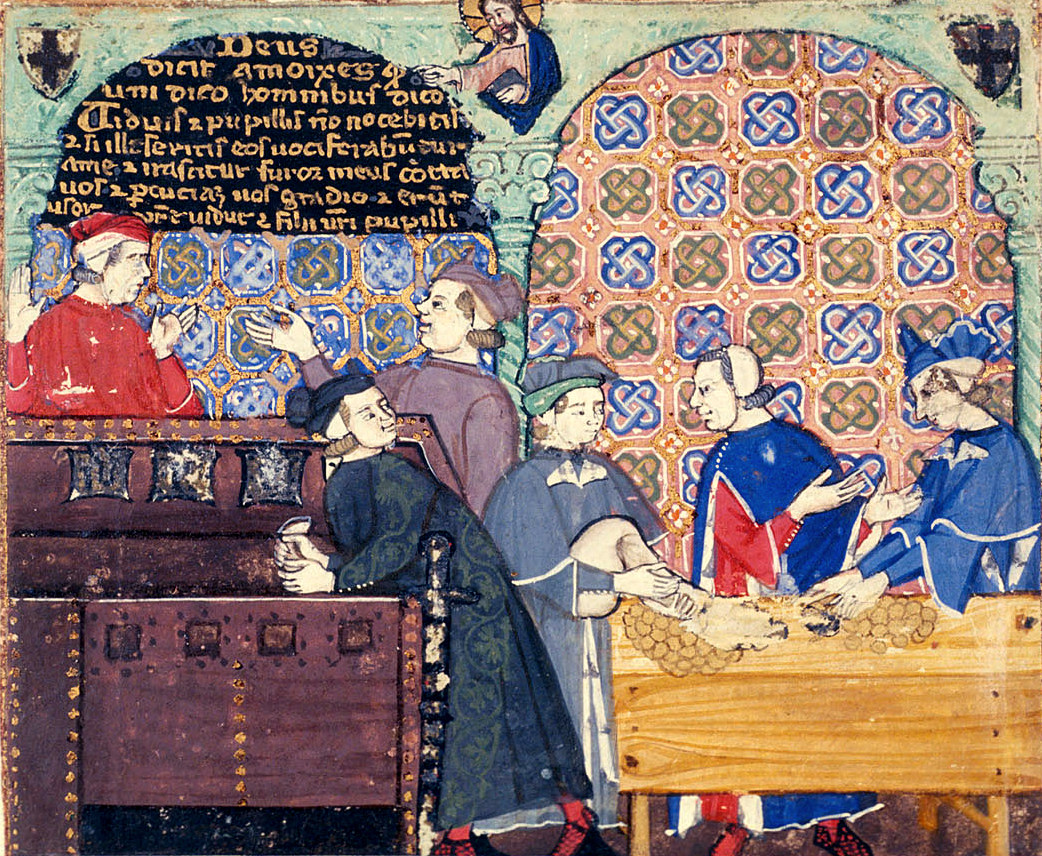 Deus
dicit amoixes q̃
uni dico hominibus dico
Uiduis ⁊ pupillis nõ nocebitis
⁊ si illeseritis eos uociferabũtur
ame ⁊ irascitur furor meus cõtra
uos ⁊ pcuciaz uos gladio ⁊ erũt
uidue ⁊ filii ur̃i pupilli